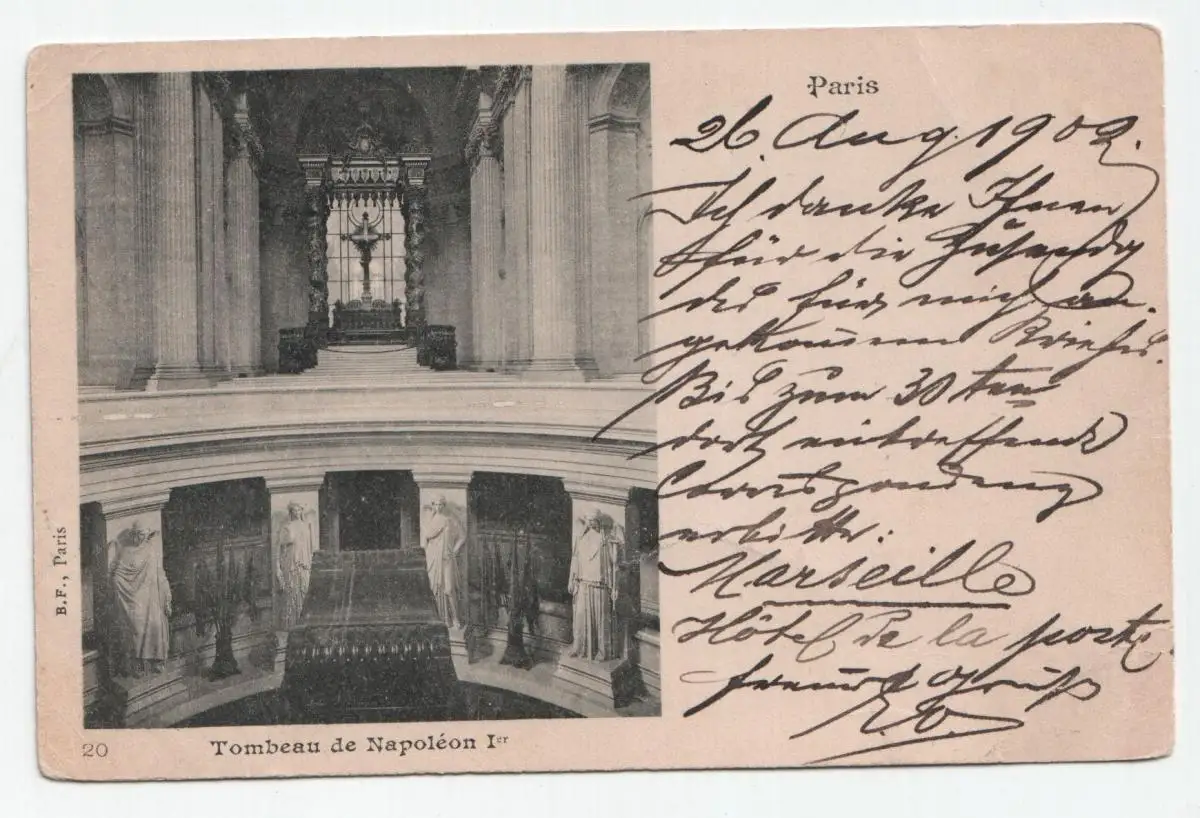 Paris
26. Aug. 1902.
Ich danke Ihnen
für die Zusendg
des für mich an-
gekommenen Briefes.
Bis zum 30ten
dort eintreffende
Correspondenz
erbitte:
Marseille
Hôtel de la poste
freundl Gruß
B.F., Paris
20 Tombeau de Napoléon Ier